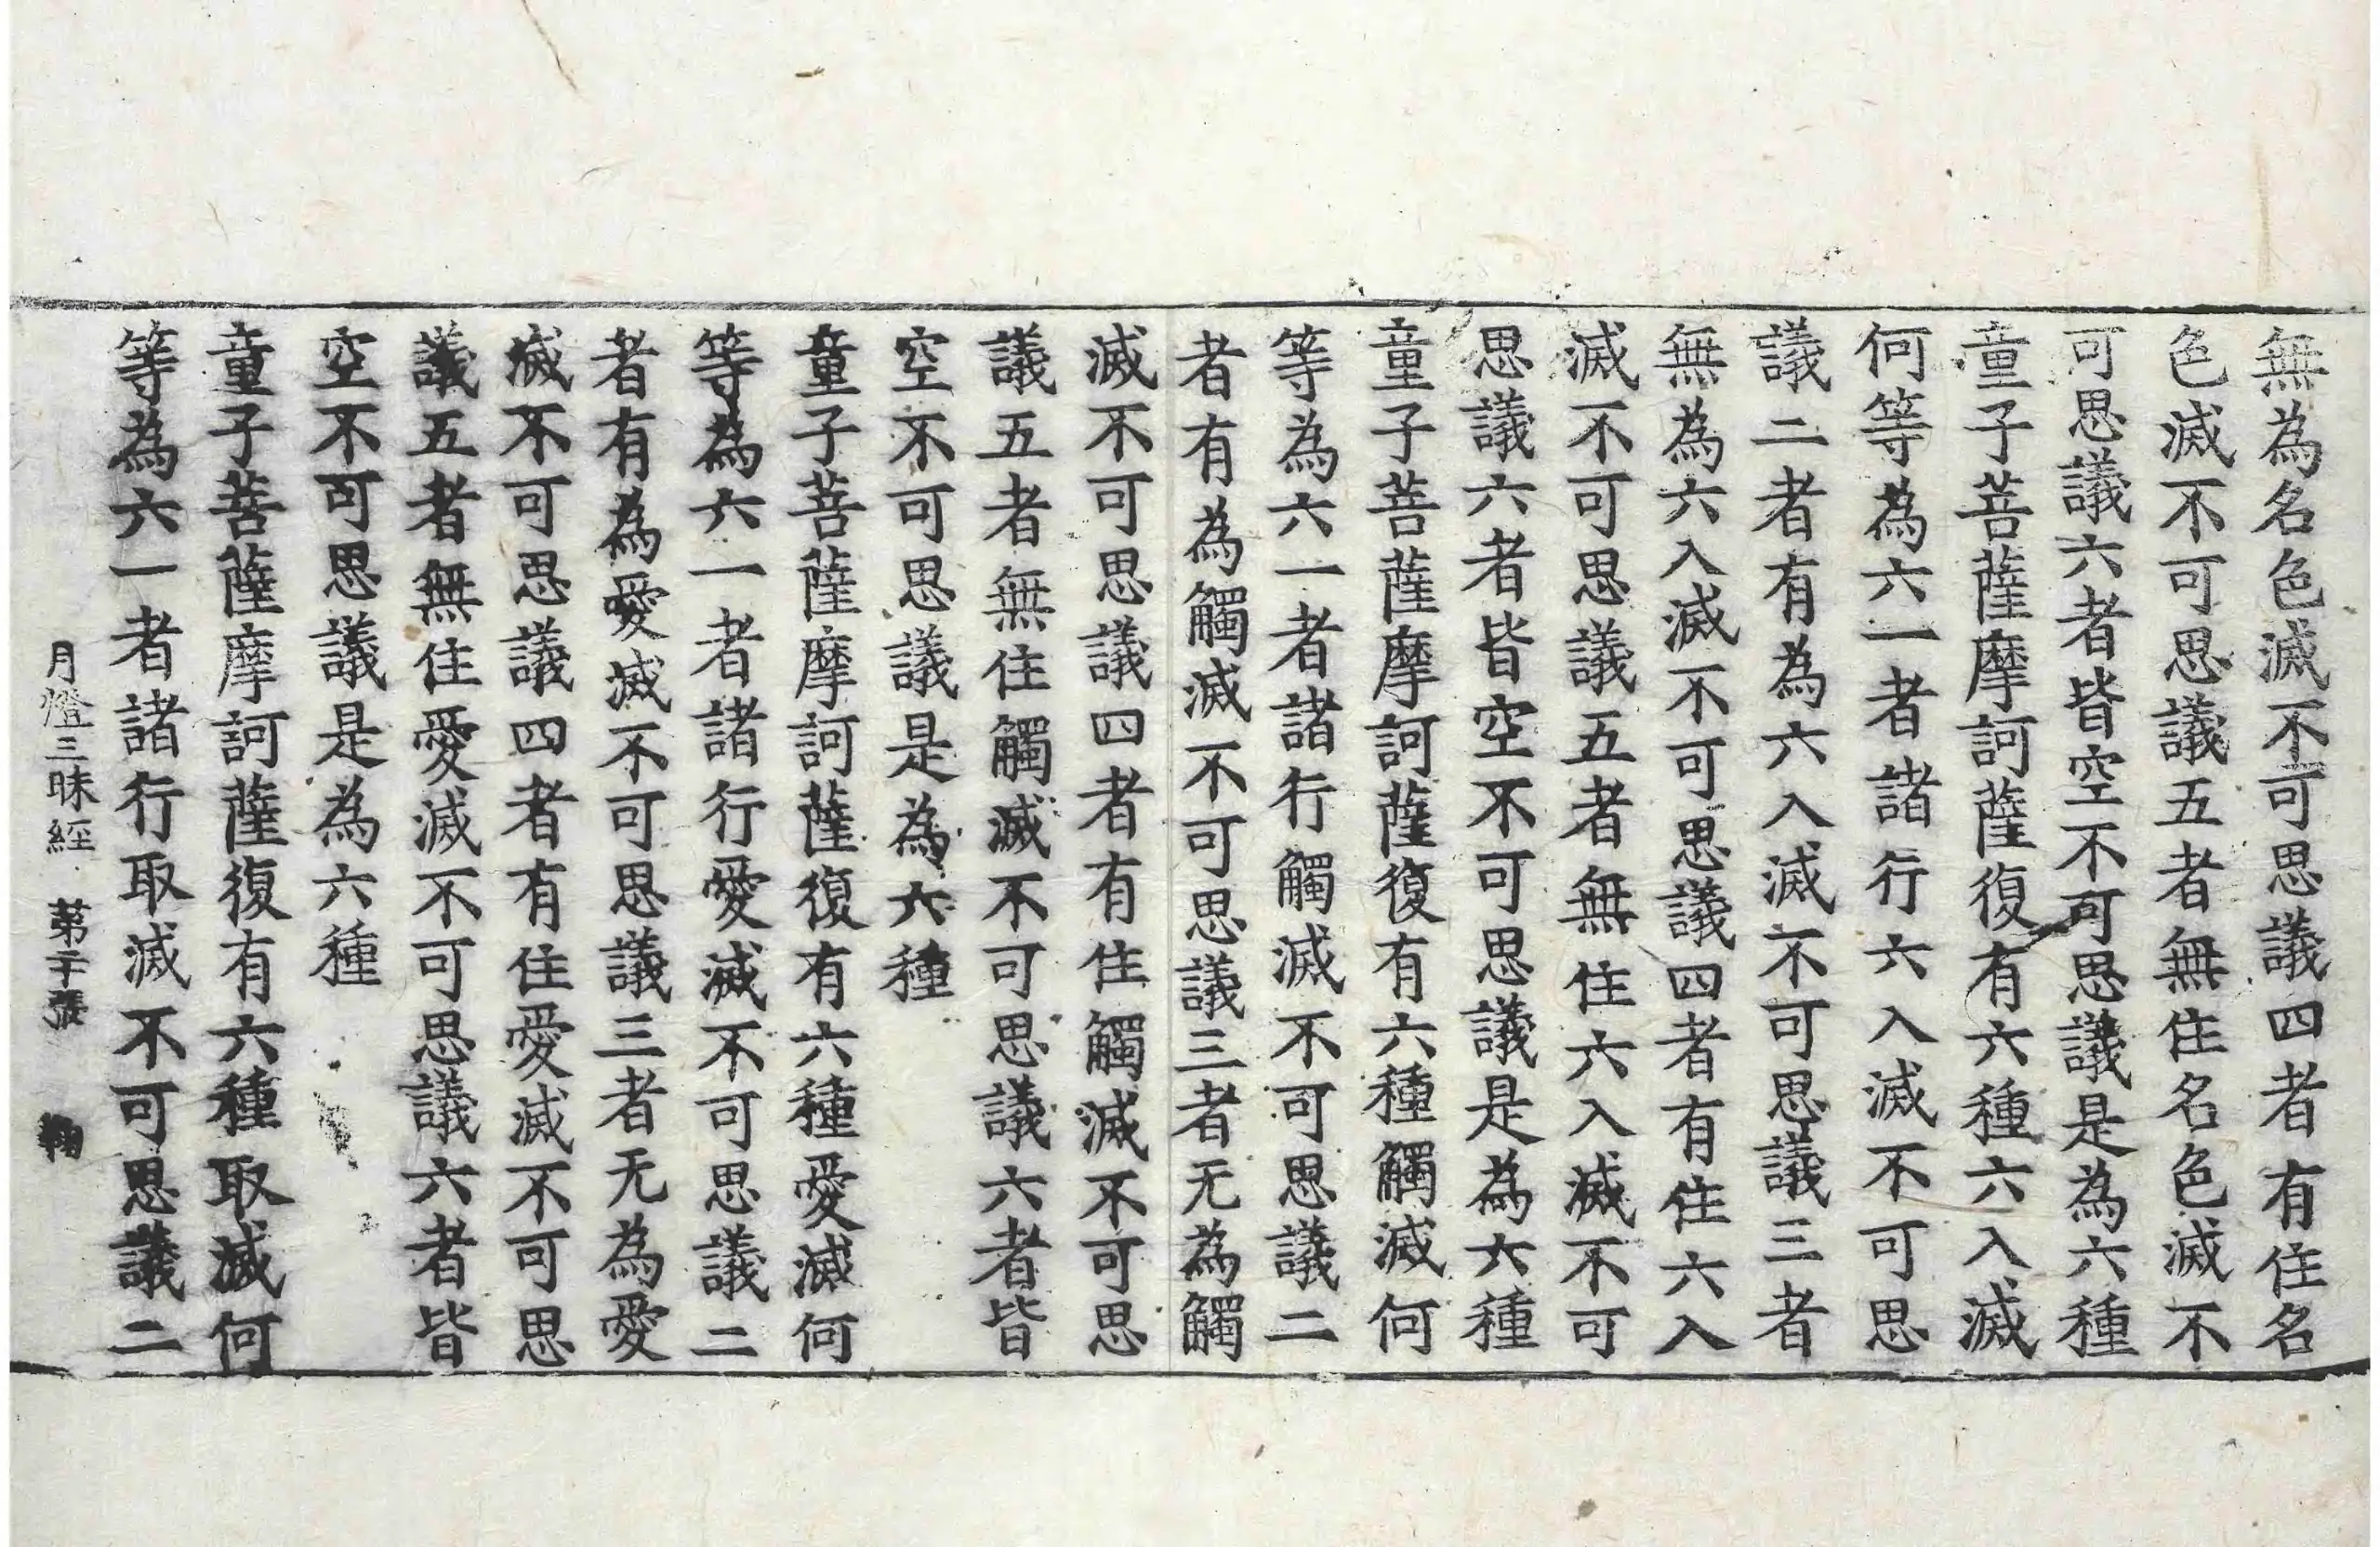 無為名色滅不可思議四者有住名
色滅不可思議五者無住名色滅不
可思議六者皆空不可思議是為六種
童子菩薩摩訶薩復有六種六入滅
何等為六一者諸行六入滅不可思
議二者有為六入滅不可思議三者
無為六入滅不可思議四者有住六入
滅不可思議五者無住六入滅不可
思議六者皆空不可思議是為六種
童子菩薩摩訶薩復有六種觸滅何
等為六一者諸行觸滅不可思議二
者有為觸滅不可思議三者无為觸
滅不可思議四者有住觸滅不可思
議五者無住觸滅不可思議六者皆
空不可思議是為六種
童子菩薩摩訶薩復有六種愛滅何
等為六一者諸行愛滅不可思議二
者有為愛滅不可思議三者无為愛
滅不可思議四者有住愛滅不可思
議五者無住愛滅不可思議六者皆
空不可思議是為六種
童子菩薩摩訶薩復有六種取滅何
等為六一者諸行取滅不可思議二
月燈三昧經 第 張